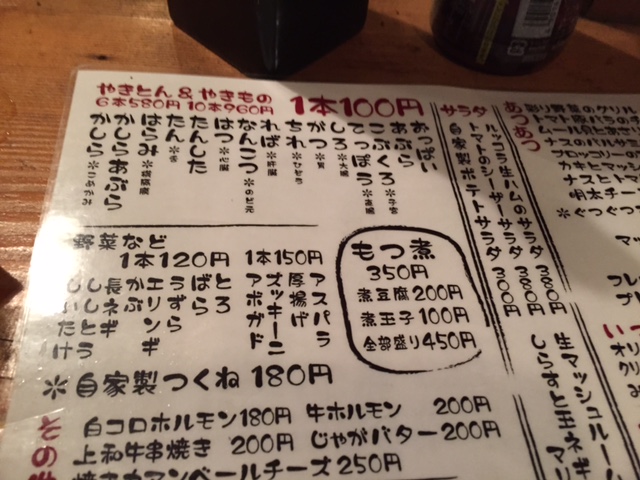 やきとん＆やきもの
6本580円 10本960円
1本100円
おっぱい
あぶら
こぶくろ※子宮
てっぽう※直腸
しろ※大腸
がつ※胃
ちれ
ればー
なんこつ※のど元
はつ※心臓
たんした
たん※舌
はらみ※横隔膜
かしらあぶら
かしら※こめかみ
野菜など
1本120円
とろ
ばら
うずら
エリンギ
かぶ
長ネギ
ししとう
しいたけ
1本150円
アスパラ
厚揚げ
ズッキーニ
アボガド
※自家製つくね 180円
もつ煮
350円
煮豆腐200円
煮玉子100円
全部盛り450円
サラダ
ルッコラ生ハムのサラダ 380円
トマトのシーザーサラダ 380円
自家製ポテトサラダ 300円
あつあつ
ムール貝とあさ
ナスのバルサミ
ブロッコリーの
カキとマッシ
ナスとトマ
明太チー
※ぐつぐつ
マッ
フレ
プ
い
オリ
クリ
生マッシュルーム
しらすと玉ネギ
白コロホルモン180円 牛ホルモン 200円
上和牛串焼き 200円 じゃがバター 200円
焼きカマンベールチーズ250円